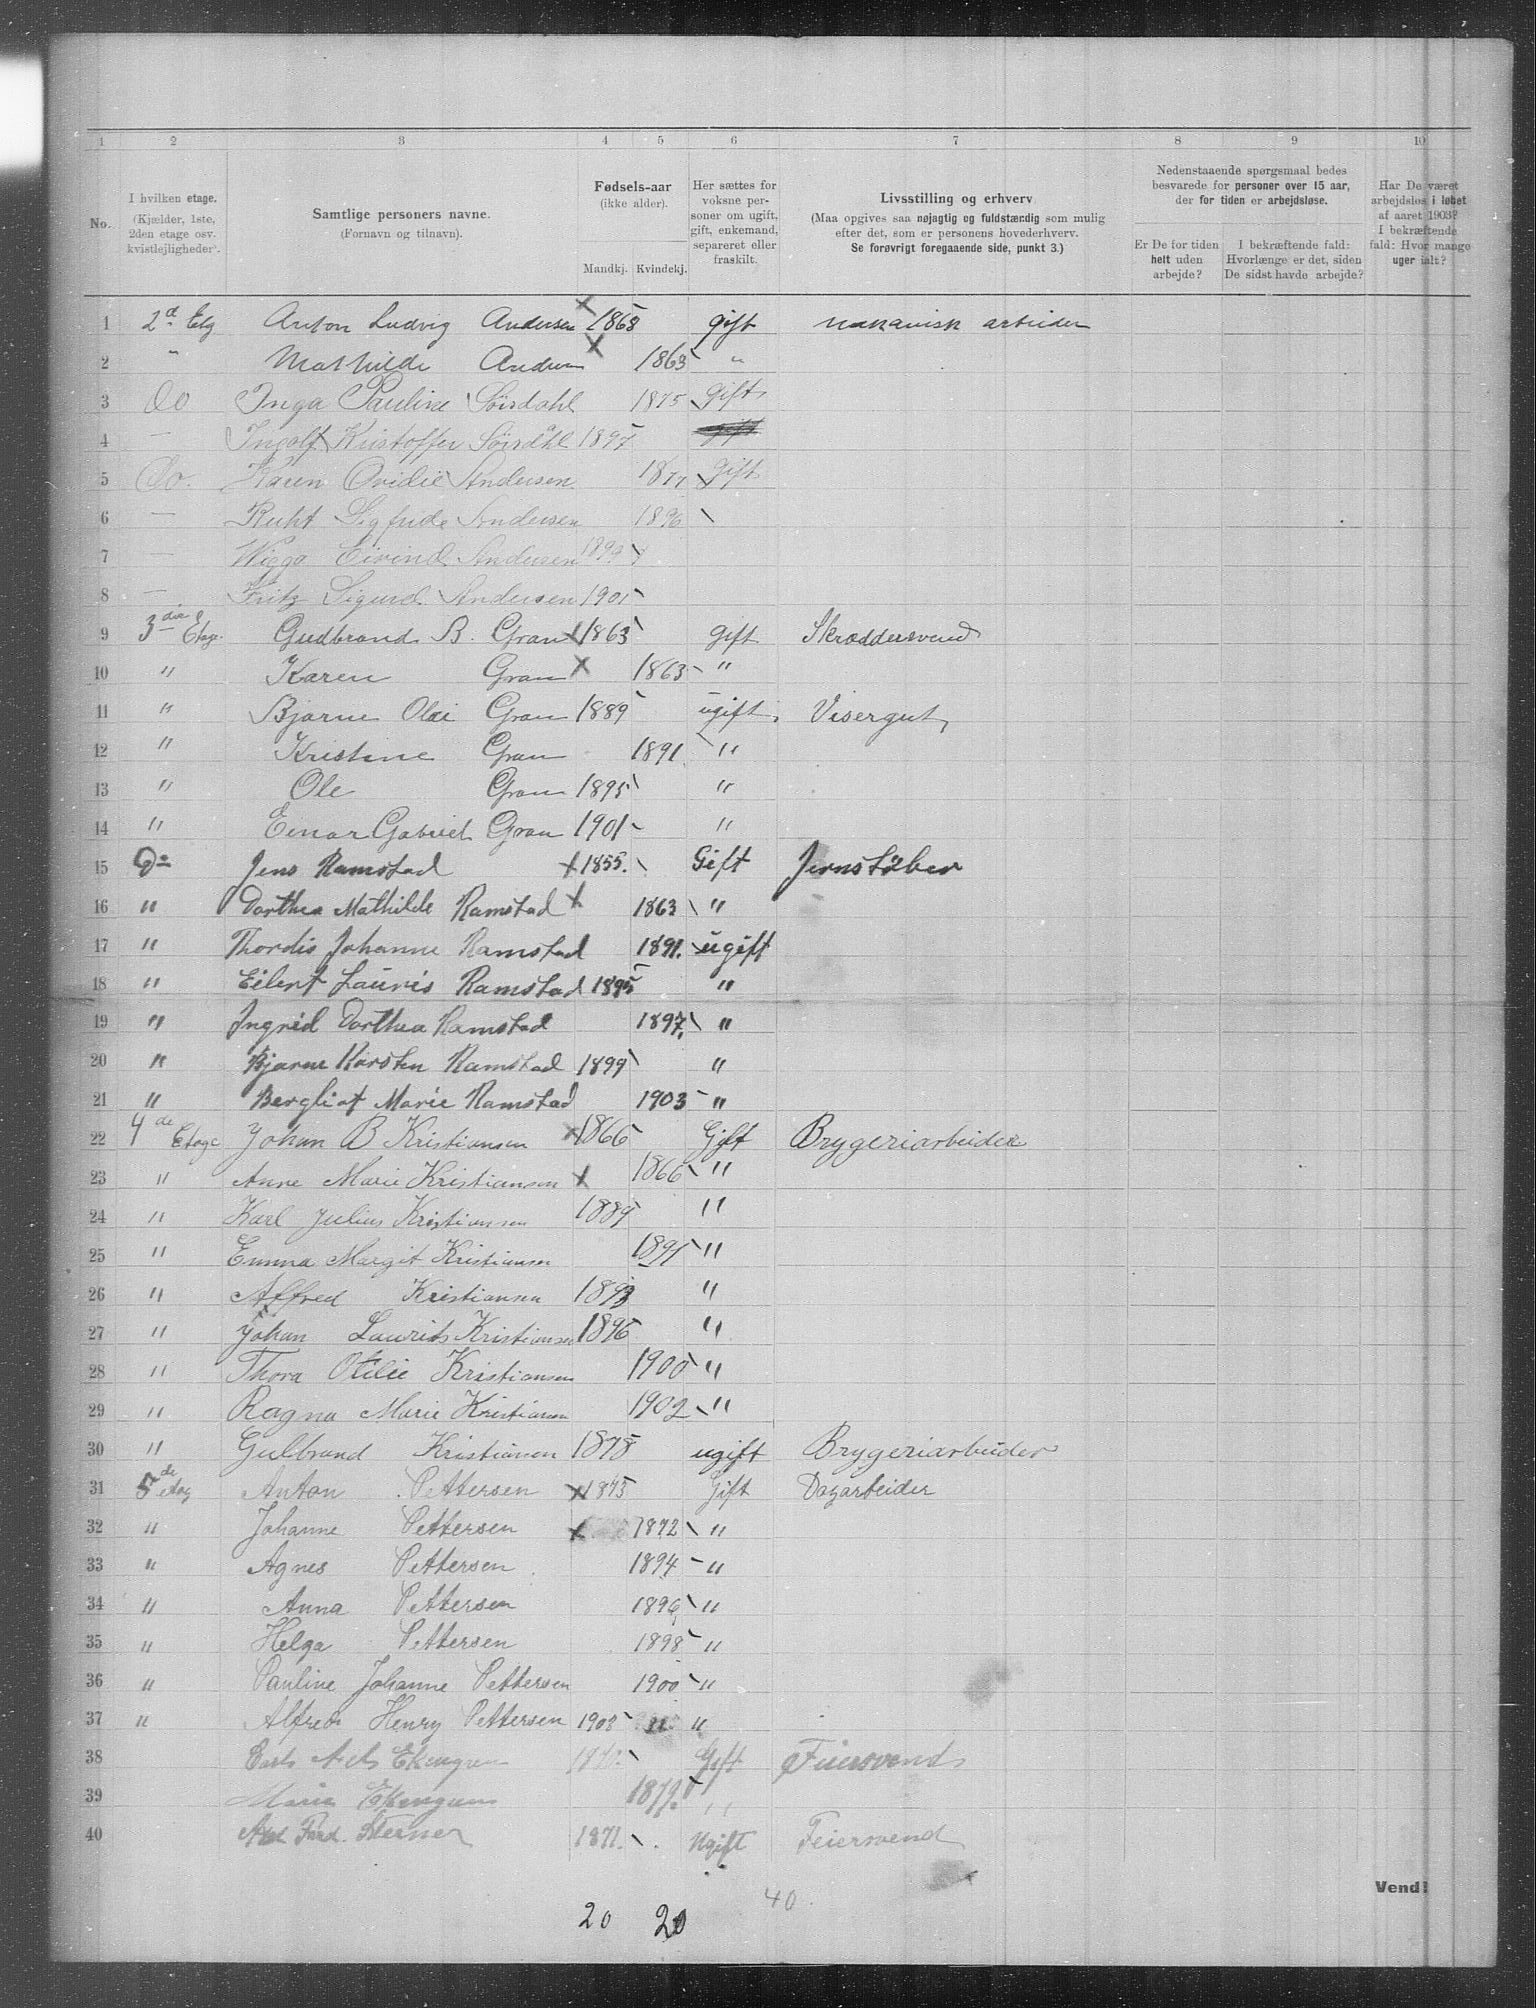 1 2 3 4 5 6 7 8 9 10
No. I hvilken etage. (Kjælder, 1ste, 2den etage osv. kvistlejligheder). Samtlige personers navne. (Fornavn og tilnavn). Fødsels-aar (ikke alder). Mandkj. Kvindekj. Her sættes for voksne personer om ugift, gift, enkemand, separeret eller fraskilt. Livsstilling og erhverv (Maa opgives saa nøjagtig og fuldstændig som mulig efter det, som er personens hovederhverv. Se forøvrigt foregaaende side, punkt 3.) Nedenstaaende spørgsmaal bedes besvarede for personer over 15 aar, der for tiden er arbejdsløse. Er De for tiden helt uden arbejde? I bekræftende fald: Hvorlænge er det, siden De sidst havde arbejde? Har De været arbejdsløs i løbet af aaret 1903? I bekræftende fald: Hvor mange uger ialt?
1 2d Etg Anton Ludvig Andersen × 1868 gift mekanisk arbeider
2 " Mathilde Andersen × 1863 "
3 Do Inga Pauline Sørdahl 1875 Gift
4 — Ingolf Kristoffer Sørdahl 1897
5 Do. Karen Ovidie Andersen 1877 Gift
6 — Ruht Sigfride Andersen 1896
7 — Wiggo Eivind Andersen
8 — Fritz Sigurd Andersen 1901
9 3die Etage. Gudbrand B. Gran × 1863 gift Skræddersvend
10 " Karen Gran × 1863 "
11 " Bjarne Olai Gran 1889 ugift Visergut
12 " Kristine Gran 1891 "
13 " Ole Gran 1895 "
14 " Einar Gabriel Gran 1901 "
15 Do Jens Ramstad × 1855. Gift Jernstøber
16 " Dorthea Mathilde Ramstad × 1863 "
17 " Thordis Johanne Ramstad 1891. ugift
18 " Eilert Lauris Ramstad 1895 "
19 " Ingrid Dorthea Ramstad 1897. "
20 " Bjarne Karsten Ramstad 1899 "
21 " Bergliot Marie Ramstad 1903 "
22 4de Etage Johan B Kristiansen × 1866 Gift Bryggeriarbeider
23 " Anne Marie Kristiansen × 1866 "
24 " Karl Julius Kristiansen 1889 "
25 " Emma Margit Kristiansen 1891 "
26 " Alfred Kristiansen 1893 "
27 " Johan Laurits Kristiansen 1896 "
28 " Thora Otilie Kristiansen 1900 "
29 " Ragna Marie Kristiansen 1902 "
30 " Gulbrand Kristiansen 1878 ugift Brygeriarbeider
31 5de etag Anton Pettersen × 1873 Gift Dagarbeider
32 " Johanne Pettersen × 1872 "
33 " Agnes Pettersen 1894 "
34 " Anna Pettersen 1896 "
35 " Helga Pettersen 1898 "
36 " Pauline Johanne Pettersen 1900 "
37 " Alfred Henry Pettersen 1903 "
38 Gift Feiersvend
39 Marie 1872. "
40 Axel Ferd. Sterner 1871. Ugift Feiersvend
40
Vend!
20 20